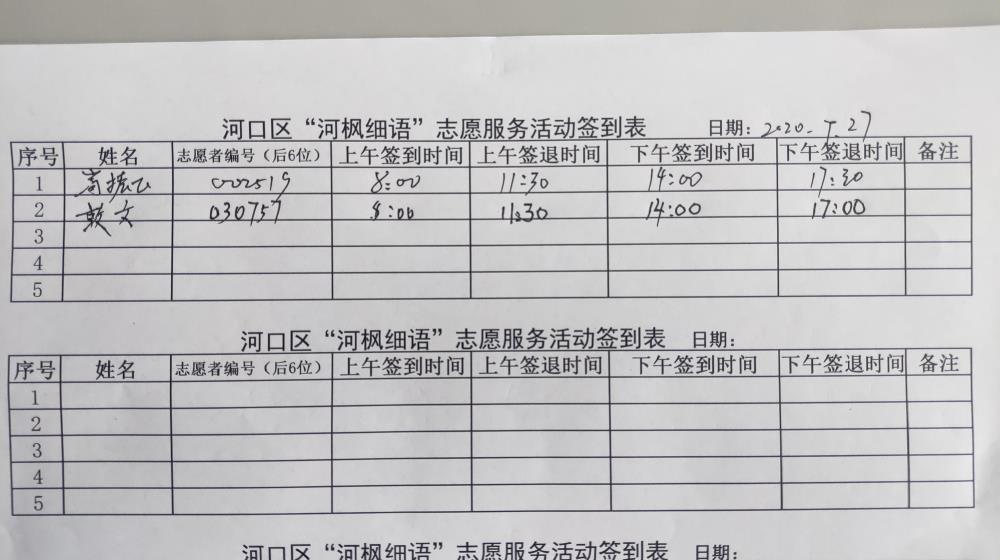 河口区“河枫细语”志愿服务活动签到表 日期：2020.7.27
序号 姓名 志愿者编号（后6位） 上午签到时间 上午签退时间 下午签到时间 下午签退时间 备注
1 002519 8:00 11:30 14:00 17:30
2 文 030757 8:00 11:30 14:00 17:00
3
4
5
河口区“河枫细语”志愿服务活动签到表 日期：
序号 姓名 志愿者编号（后6位） 上午签到时间 上午签退时间 下午签到时间 下午签退时间 备注
1
2
3
4
5
河口区“河枫细语”志愿服务活动签到表 日期：